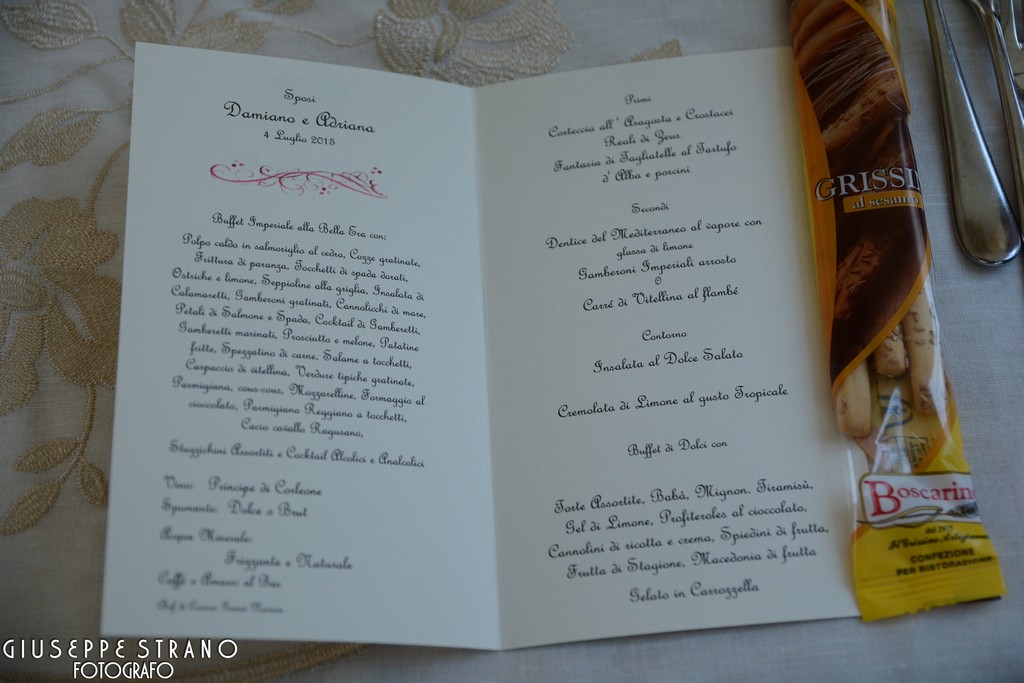 Sposi
Damiano e Adriana
4 Luglio 2015
Buffet Imperiale alla Bella Era con:
Polpo caldo in salmoriglio al cedro, Cozze gratinate,
Frittura di paranza, Tocchetti di spada dorati,
Ostriche e limone, Seppioline alla griglia, Insalata di
Calamaretti, Gamberoni gratinati, Cannolicchi di mare,
Petali di Salmone e Spada, Cocktail di Gamberetti,
Gamberetti marinati, Prosciutto e melone, Patatine
fritte, Spezzatino di carne, Salame a tocchetti,
Carpaccio di vitellina, Verdure tipiche gratinate,
Parmigiana, cous-cous, Mozzarelline, Formaggio al
cioccolato, Parmigiano Reggiano a tocchetti,
Cacio cavallo Ragusano,
Stuzzichini Assortiti e Cocktail Alcolici e Analcolici
Vino: Principe di Corleone
Spumante: Dolce o Brut
Acqua Minerale:
Frizzante e Naturale
Caffè o Amaro al Bar
Primi
Corteccia all' Aragosta e Crostacei
Reali di Zeus
Fantasia di Tagliatelle al Tartufo
d' Alba e porcini
Secondi
Dentice del Mediterraneo al vapore con
glassa di limone
Gamberoni Imperiali arrosto
O
Carrè di Vitellina al flambé
Contorno
Insalata al Dolce Salato
Cremolata di Limone al gusto Tropicale
Buffet di Dolci con
Torte Assortite, Babà, Mignon, Tiramisù,
Gel di Limone, Profiteroles al cioccolato,
Cannolini di ricotta e crema, Spiedini di frutta,
Frutta di Stagione, Macedonia di frutta
Gelato in Carrozzella
GRISSI
al sesamo
Boscarin
dal 1975
Il Grissino Artigiano
CONFEZIONE
PER RISTORAZIONE
GIUSEPPE STRANO
FOTOGRAFO